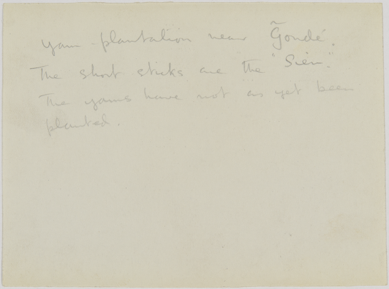 Yam-plantation near G̃ondé.
The short sticks are the "Sien".
The yams have not as yet been
planted.